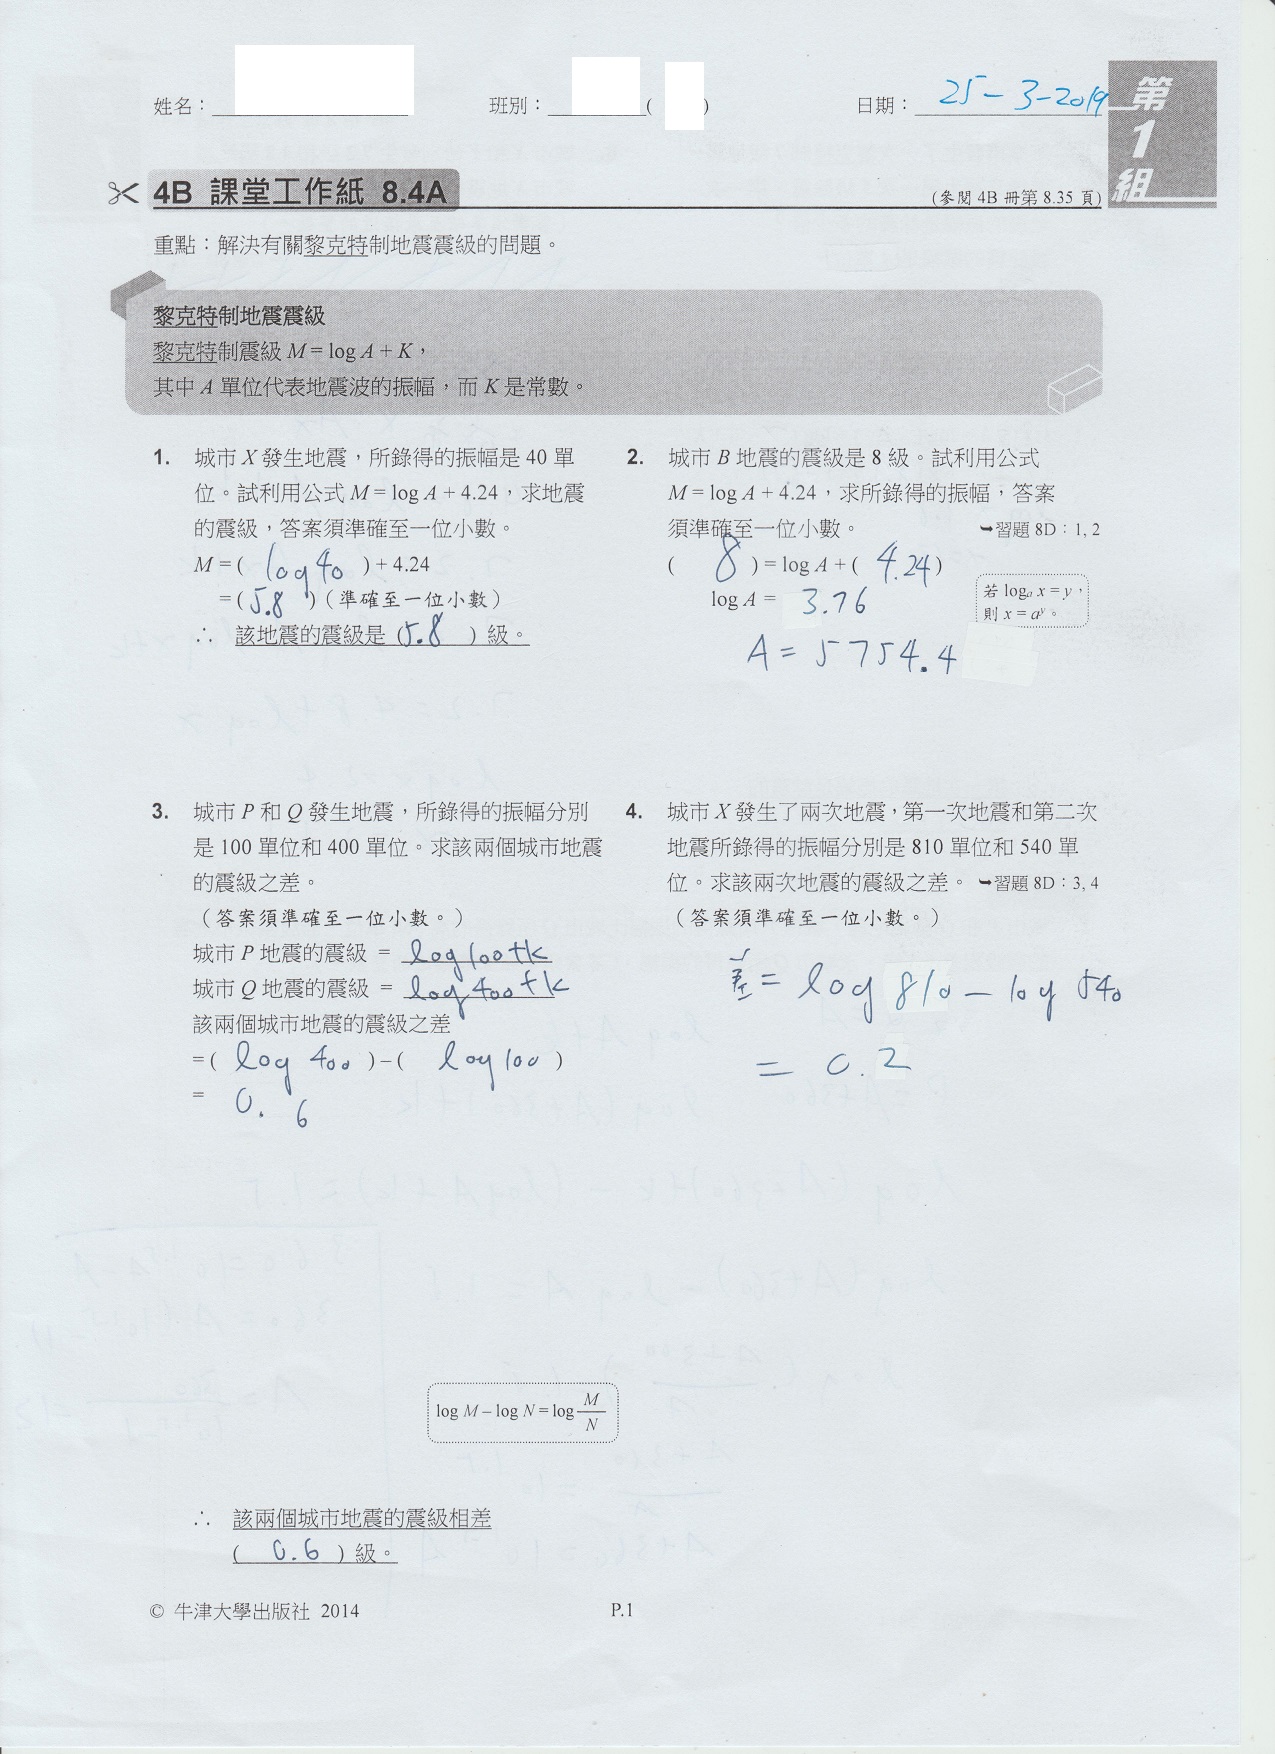 姓名：
班別：　(　)
日期：25-3-2019
第1組
4B 課堂工作紙 8.4A
(參閱 4B 冊第 8.35 頁)
重點：解決有關黎克特制地震震級的問題。
黎克特制地震震級
黎克特制震級 M = log A + K，
其中 A 單位代表地震波的振幅，而 K 是常數。
1. 城市 X 發生地震，所錄得的振幅是 40 單
位。試利用公式 M = log A + 4.24，求地震
的震級，答案須準確至一位小數。
M = ( log 40 ) + 4.24
= ( 5.8 ) (準確至一位小數)
∴ 該地震的震級是 ( 5.8 ) 級。
2. 城市 B 地震的震級是 8 級。試利用公式
M = log A + 4.24，求所錄得的振幅，答案
須準確至一位小數。 ➥習題 8D：1, 2
( 8 ) = log A + ( 4.24 )
log A = 3.76
若 logₐ x = y，
則 x = aʸ。
A = 5754.4
3. 城市 P 和 Q 發生地震，所錄得的振幅分別
是 100 單位和 400 單位。求該兩個城市地震
的震級之差。
（答案須準確至一位小數。）
城市 P 地震的震級 = log 100 + k
城市 Q 地震的震級 = log 400 + k
該兩個城市地震的震級之差
= ( log 400 ) – ( log 100 )
= 0.6
log M – log N = log M/N
∴ 該兩個城市地震的震級相差
( 0.6 ) 級。
4. 城市 X 發生了兩次地震，第一次地震和第二次
地震所錄得的振幅分別是 810 單位和 540 單
位。求該兩次地震的震級之差。 ➥習題 8D：3, 4
（答案須準確至一位小數。）
差 = log 810 – log 540
= 0.2
© 牛津大學出版社 2014
P.1